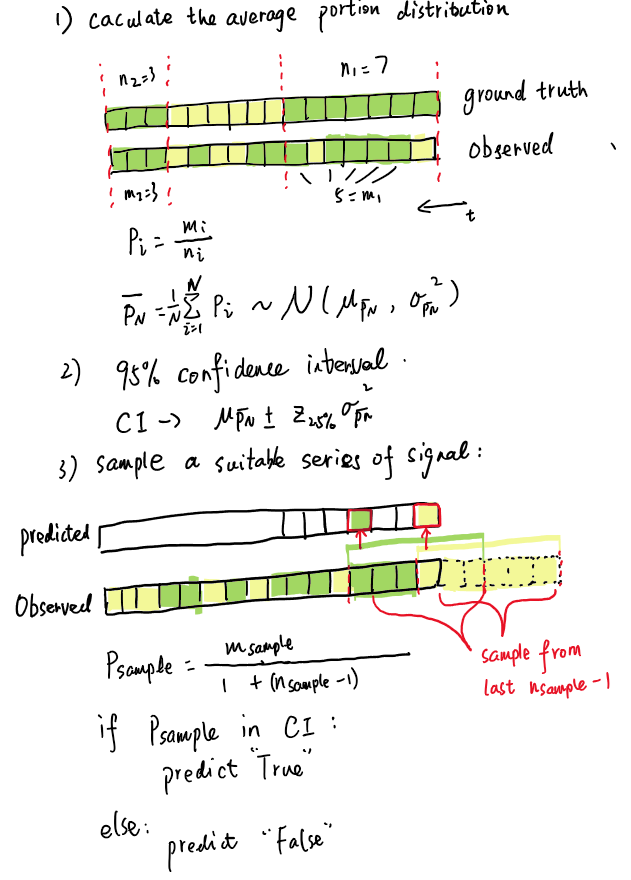 1) caculate the average portion distribution
n₂=3 n₁=7
ground truth
observed
m₂=3 5=m₁
t
Pᵢ = mᵢ/nᵢ
P̄_N = 1/N Σᵢ₌₁ᴺ Pᵢ ~ N(μ_P̄N, σ_P̄N²)
2) 95% confidence interval.
CI -> μ_P̄N ± Z₂.₅% σ_P̄N²
3) sample a suitable series of signal:
predicted
Observed
P_sample = m_sample / 1 + (n_sample -1)
sample from
last n_sample -1
if P_sample in CI:
predict "True"
else:
predict "False"